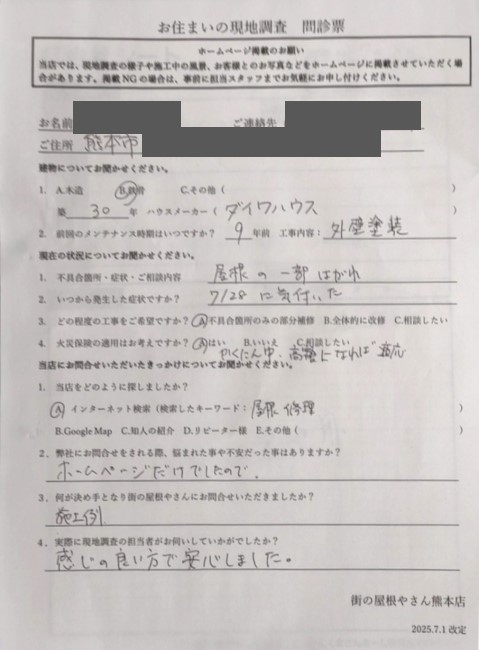 お住まいの現地調査 問診票
ホームページ掲載のお願い
当店では、現地調査の様子や施工中の風景、お客様とのお写真などをホームページに掲載させていただく場
合があります。掲載NGの場合は、事前に担当スタッフまでお気軽にお申し付けください。
お名前 ご連絡先（
ご住所 熊本市
建物についてお聞かせください。
1. A.木造 B.鉄骨 C.その他（ ）
築 30 年 ハウスメーカー（ ダイワハウス ）
2. 前回のメンテナンス時期はいつですか？ 9 年前 工事内容： 外壁塗装
現在の状況についてお聞かせください。
1. 不具合箇所・症状・ご相談内容 屋根の一部はがれ
2. いつから発生した症状ですか？ 7/28 に気付いた
3. どの程度の工事をご希望ですか？ A.不具合箇所のみの部分補修 B.全体的に改修 C.相談したい
4. 火災保険の適用はお考えですか？ A.はい B.いいえ C.相談したい
かくにん中、高額になれば適応
当店にお問合せいただいたきっかけについてお聞かせください。
1. 当店をどのように探しましたか？
A. インターネット検索（検索したキーワード： 屋根 修理 ）
B.Google Map C.知人の紹介 D.リピーター様 E.その他（ ）
2. 弊社にお問合せをされる際、悩まれた事や不安だった事はありますか？
ホームページだけでしたので、
3. 何が決め手となり街の屋根やさんにお問合せいただきましたか？
施工例
4. 実際に現地調査の担当者がお伺いしていかがでしたか？
感じの良い方で安心しました。
街の屋根やさん熊本店
2025.7.1 改定